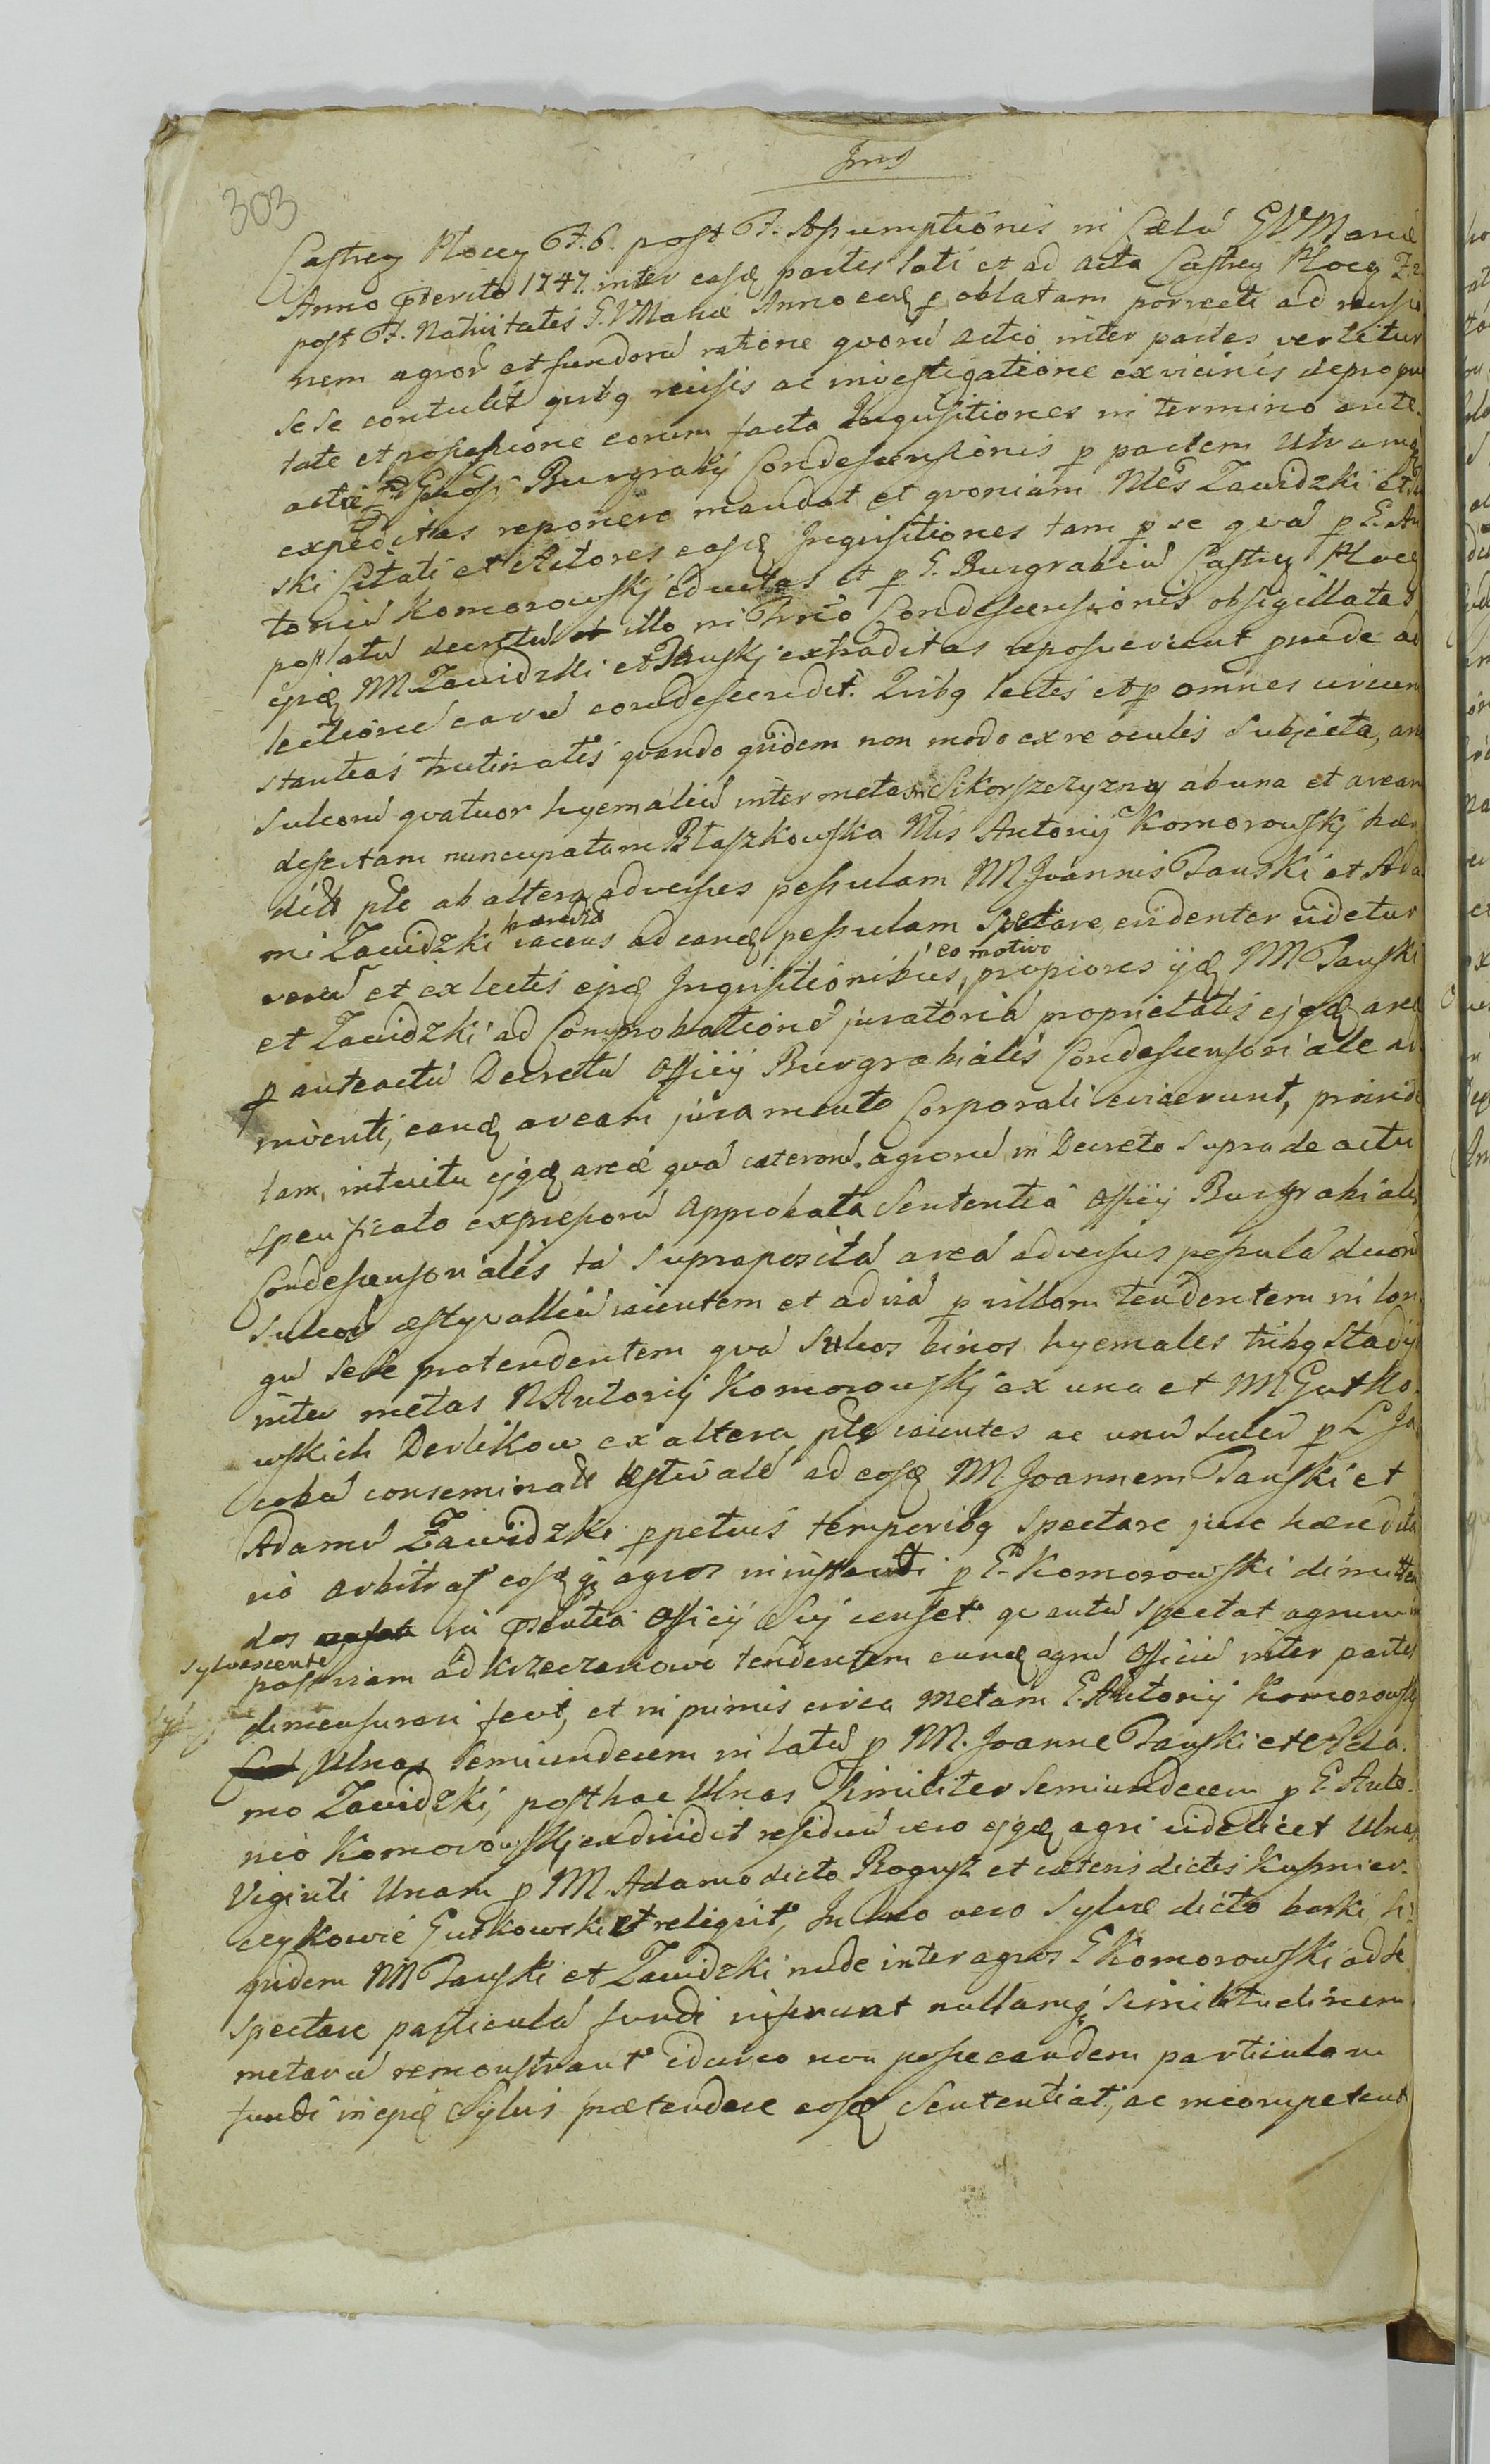 Jms
303
Castren Plocen F. 6. post F. Assumptionis in Cælu G V Mariæ
Anno præterito 1747. inter easdem partes lati et ad acta Castren Plocen F. 2.
post F. Nativitatis G. V Mariæ Anno eod p oblatam porrecti ad revisio
nem agror et fundoru ratione quoru actio inter partes vertitur
sese contulit quibq revisis ac investigatione ex vicinis de proprie
tate et possessione eorum facta Inquisitiones in termino ante
actæ Burgrabij Condescensionis p partem Utramq
expeditas reponere mandat et quoniam Nles Zawidzki et
ski Citati et Actores easdem Inquisitiones tam p se qva p G. An
toniu Komorowskj eductas et p G. Burgrabiu Castren Plocen
post latu decretu ab illo in Condescensionis obsigillatas
ejsdem NN Zawidzki et Pauskj extraditas reposuerunt proinde ad
lectione earu condescendit. Quibq lectis et p omnes circum
stantias trutinatis quando quidem non modo ex re oculis Subjecta, area
Sulcoru quatuor hyemaliu inter metas Sikorszczyzny ab una et aream
desertam nuncupatam Błaszkowska Nlis Antonij Komorowskj hær
pte ab altera adversus pessulam NN Joannis Pauski et Ada
mi Zawidzki hæredu iacens ad eand pessulam Spectare evidenter videtur
veru et ex lectis ejsdem Inquisitionibus, eo motivo propiores ijdem NN Pauski
et Zawidzki ad Comprobatione juratoria proprietatis ejusdem areæ
p anteactu Decretu Officij Burgrabialis Condescensoriale ad
inventi, eand aream juramento Corporali evicerunt, proinde
tam, intuitu ejusdem areæ qva cæteroru agroru in Decreto supra de actu
specificato expressoru Approbata Sententia Officij Burgrabialis
Condescensorialis ta supraposita area adversus pessula duoru
Sulcoru æstyvalliu iacentem et ad via p villam tendentem in lon
gu sese protendentem qva Sulcos binos hyemales tribq Stadijs
inter metas N Antonij Komorowskj ex una et NN Gutko
wskich Derlikow ex altera pte iacentes ac unu sulcu p L Ja
cobu conseminatu æstivale ad eosdem NN Joannem Pauski et
Adamu Zawidzki ppetuis temporibq Spectare jure hæredita
rio arbitrat eosdem qz agros in instanti p G. Komorowski dimitten
dos in præsentia Officij Sui censet. quantu Spectat agrum
Sylvescente
post viam ad Krzeczanowo tendentem eund agru Officiu inter partes
dimensurari fecit, et in primis circa Metam G. Antonij Komorowskj
Ulnas Semiundecem in latu p NN. Joanne Pauski et Ada
mo Zawidzki, posthac Ulnas Similiter Semiundecem p G. Anto
nio Komorowskj exdividit residuu vero ejusdem agri videlicet Ulnas
Viginti Unam p NN. Adamo dicto Rogusz et cæteris dictis Kusnier
czykowie Gutkowski et reliquit, In loco vero Sylvæ dicto borki si
quidem NN Pauski et Zawidzki nude inter agros G Komorowski ad se
Spectare particula fundi inferunt nullamq Similitudinem
metaru remonstrant idcirco non posse eandem particulam
fundi in ejsdem Sylvis prætendere eosdem Sententiat, ac incompetent